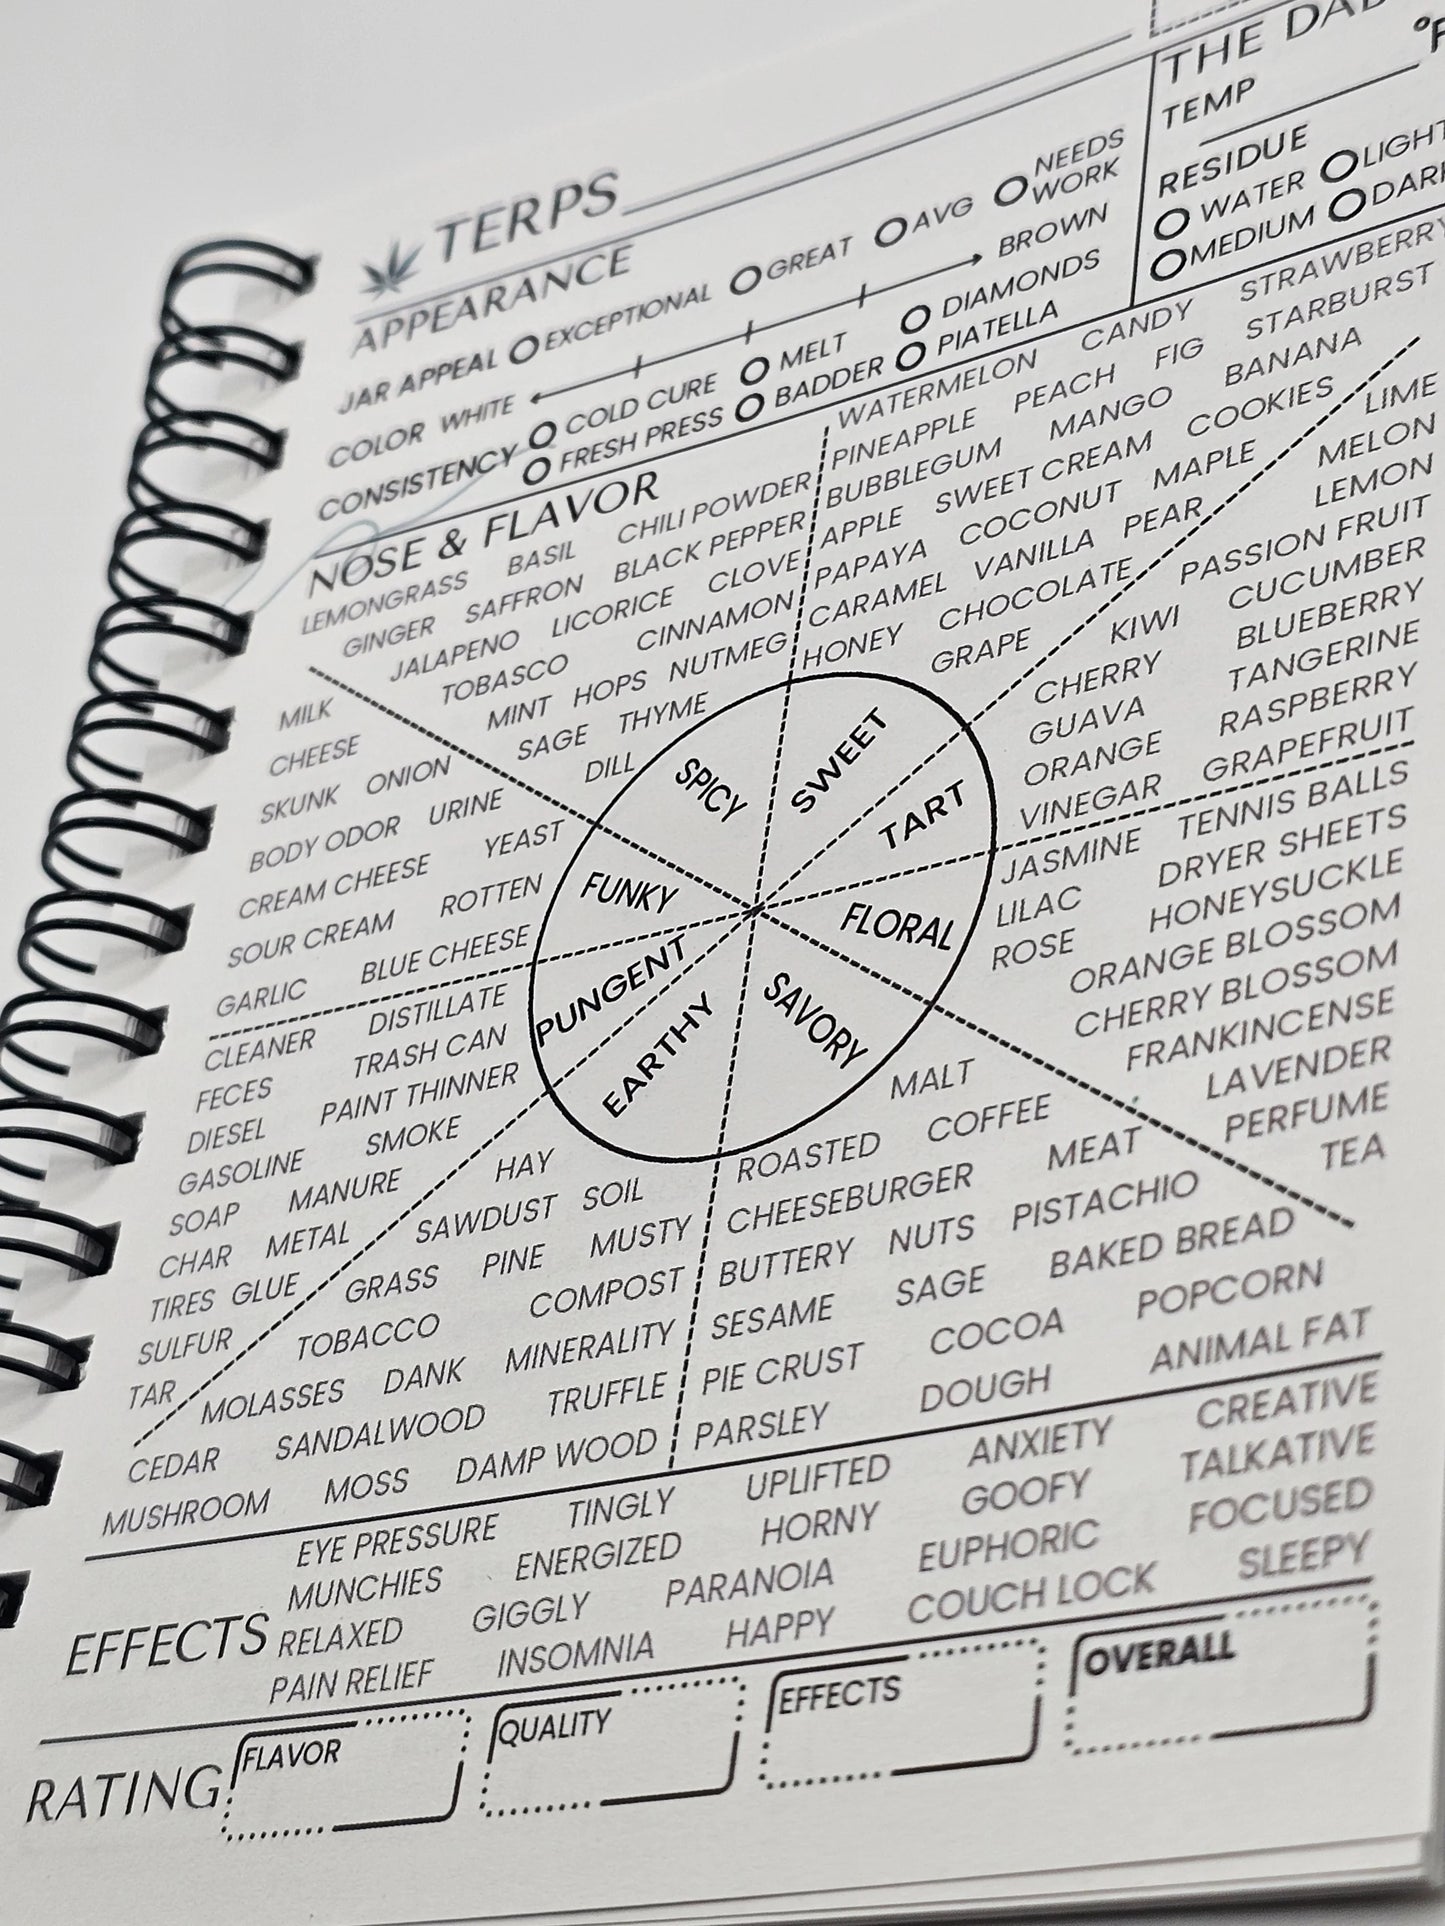 THE DAB
TEMP °F
RESIDUE
WATER LIGHT
MEDIUM DARK
TERPS
APPEARANCE
JAR APPEAL EXCEPTIONAL GREAT AVG NEEDS WORK
COLOR WHITE BROWN
CONSISTENCY COLD CURE MELT DIAMONDS
FRESH PRESS BADDER PIATELLA
NOSE & FLAVOR
LEMONGRASS BASIL CHILI POWDER
GINGER SAFFRON BLACK PEPPER
JALAPENO LICORICE CLOVE
TOBASCO CINNAMON
MINT HOPS NUTMEG
SAGE THYME
DILL
WATERMELON CANDY STRAWBERRY
PINEAPPLE PEACH FIG STARBURST
BUBBLEGUM MANGO BANANA
APPLE SWEET CREAM COOKIES
PAPAYA COCONUT MAPLE
CARAMEL VANILLA PEAR
HONEY CHOCOLATE
GRAPE
LIME
MELON
LEMON
PASSION FRUIT
KIWI CUCUMBER
CHERRY BLUEBERRY
GUAVA TANGERINE
ORANGE RASPBERRY
VINEGAR GRAPEFRUIT
MILK
CHEESE
SKUNK ONION
BODY ODOR URINE
CREAM CHEESE YEAST
SOUR CREAM ROTTEN
GARLIC BLUE CHEESE
SPICY
SWEET
TART
FUNKY
FLORAL
PUNGENT
EARTHY
SAVORY
JASMINE TENNIS BALLS
LILAC DRYER SHEETS
ROSE HONEYSUCKLE
ORANGE BLOSSOM
CHERRY BLOSSOM
FRANKINCENSE
LAVENDER
PERFUME
TEA
CLEANER DISTILLATE
FECES TRASH CAN
DIESEL PAINT THINNER
GASOLINE SMOKE
SOAP MANURE
CHAR METAL
TIRES GLUE
SULFUR
TAR
HAY
SAWDUST SOIL
GRASS PINE MUSTY
TOBACCO COMPOST
MOLASSES DANK MINERALITY
CEDAR SANDALWOOD TRUFFLE
MUSHROOM MOSS DAMP WOOD
MALT
ROASTED COFFEE
CHEESEBURGER MEAT
BUTTERY NUTS PISTACHIO
SESAME SAGE BAKED BREAD
PIE CRUST COCOA POPCORN
PARSLEY DOUGH ANIMAL FAT
EFFECTS
EYE PRESSURE TINGLY UPLIFTED ANXIETY CREATIVE
MUNCHIES ENERGIZED HORNY GOOFY TALKATIVE
RELAXED GIGGLY PARANOIA EUPHORIC FOCUSED
PAIN RELIEF INSOMNIA HAPPY COUCH LOCK SLEEPY
RATING FLAVOR QUALITY EFFECTS OVERALL